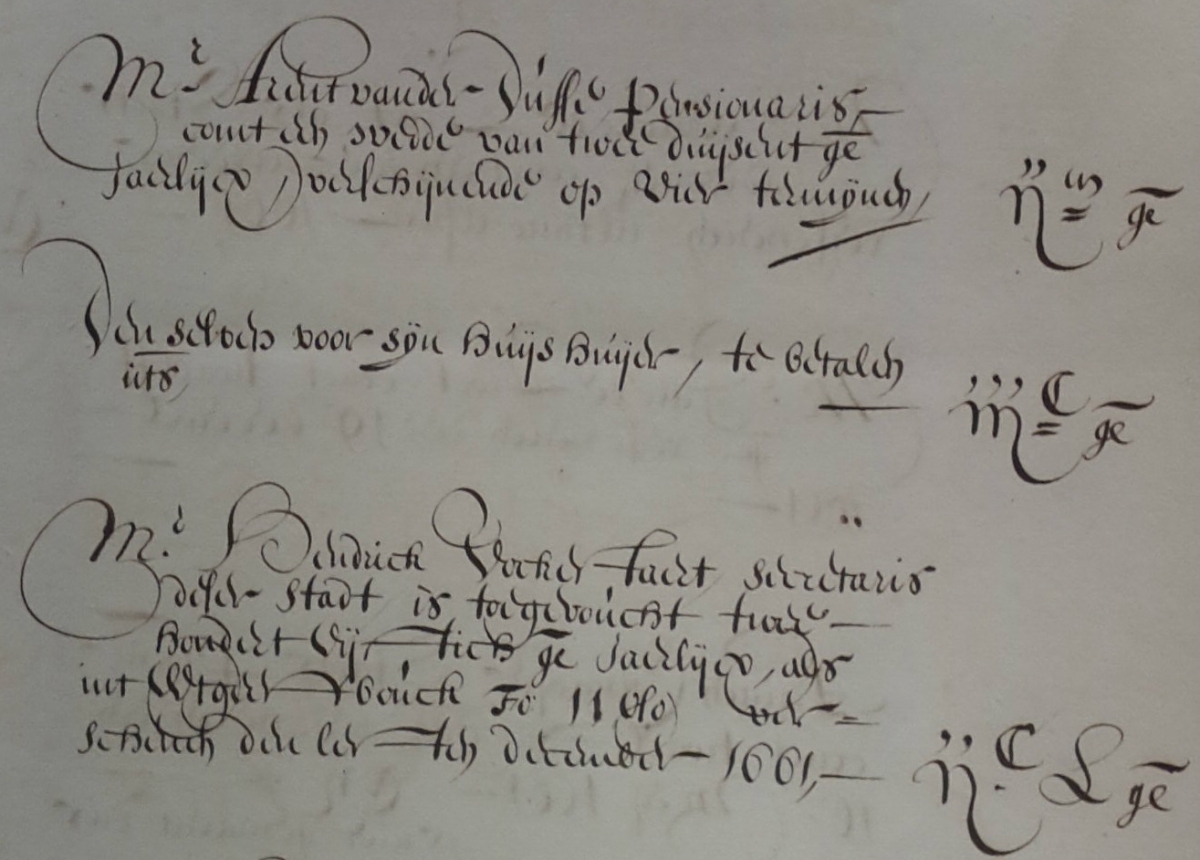 Mr Arent vander Dusse Pensionaris
comt een somme van twee duijsent ge
Jaerlijcx, verschijnende op vier termijnen, ijm ge
Den selven voor sijn huijs huijer, te betalen
uts, iijC ge
Mr. Hendrick Vockestaert secretaris
deser stadt is toegevoucht twee
hondert vijftich ge Jaerlijcx, als
int bouck Fo 11 ver
schenen den lesten december 1661, ijC L ge